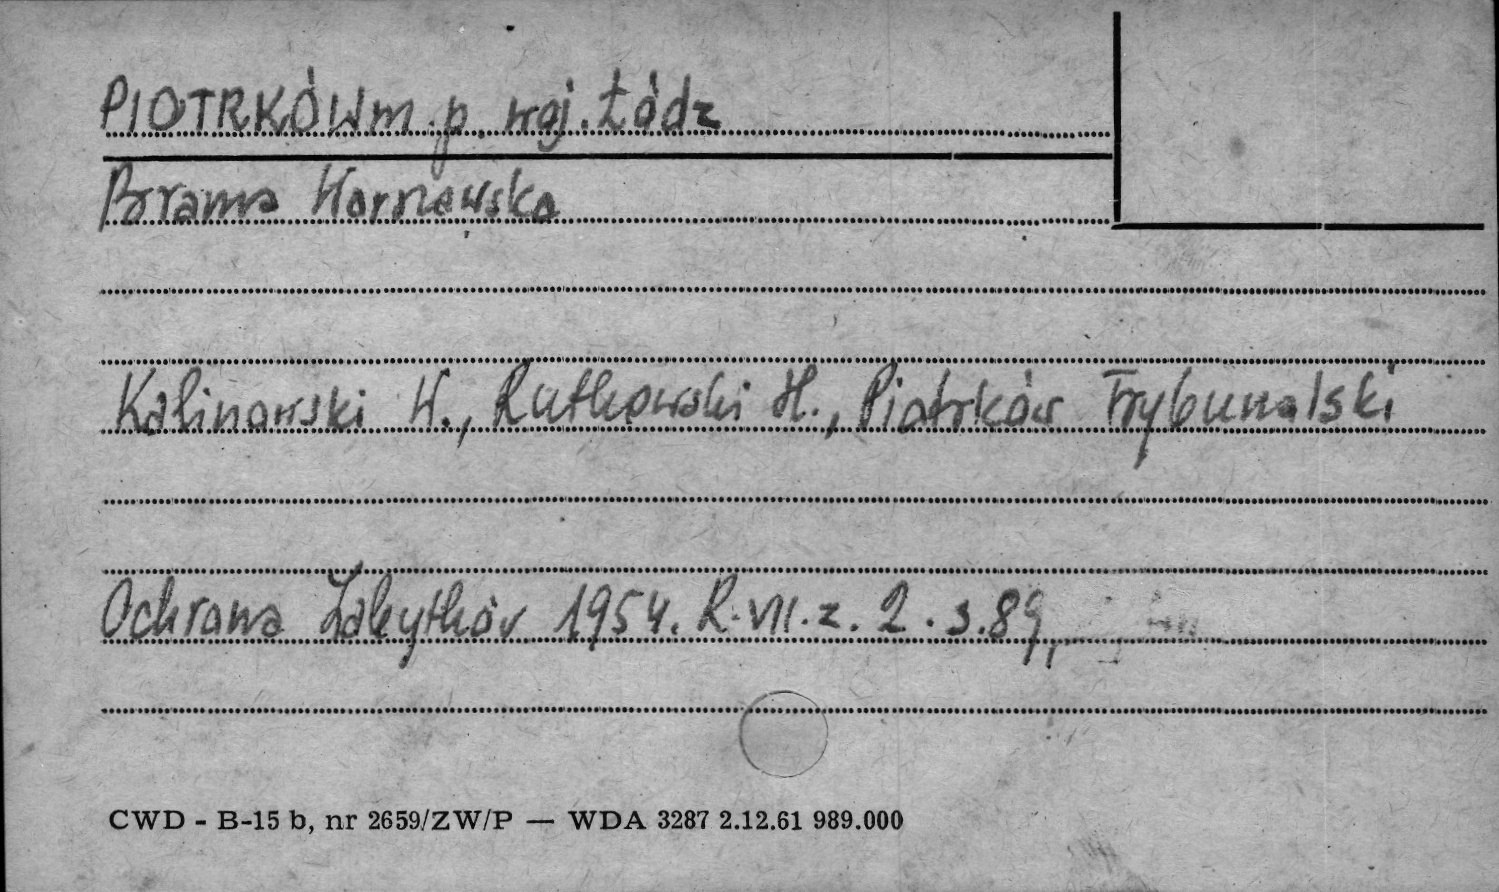 PIOTRKÓW m.p. woj. Łódz
Brama Warszewska
Kalinowski W., Rutkowski H., Piotrków Trybunalski
Ochrona Zabytków 1954. R. VII. z. 2. s. 89,
CWD - B-15 b, nr 2659/ZW/P — WDA 3287 2.12.61 989.000